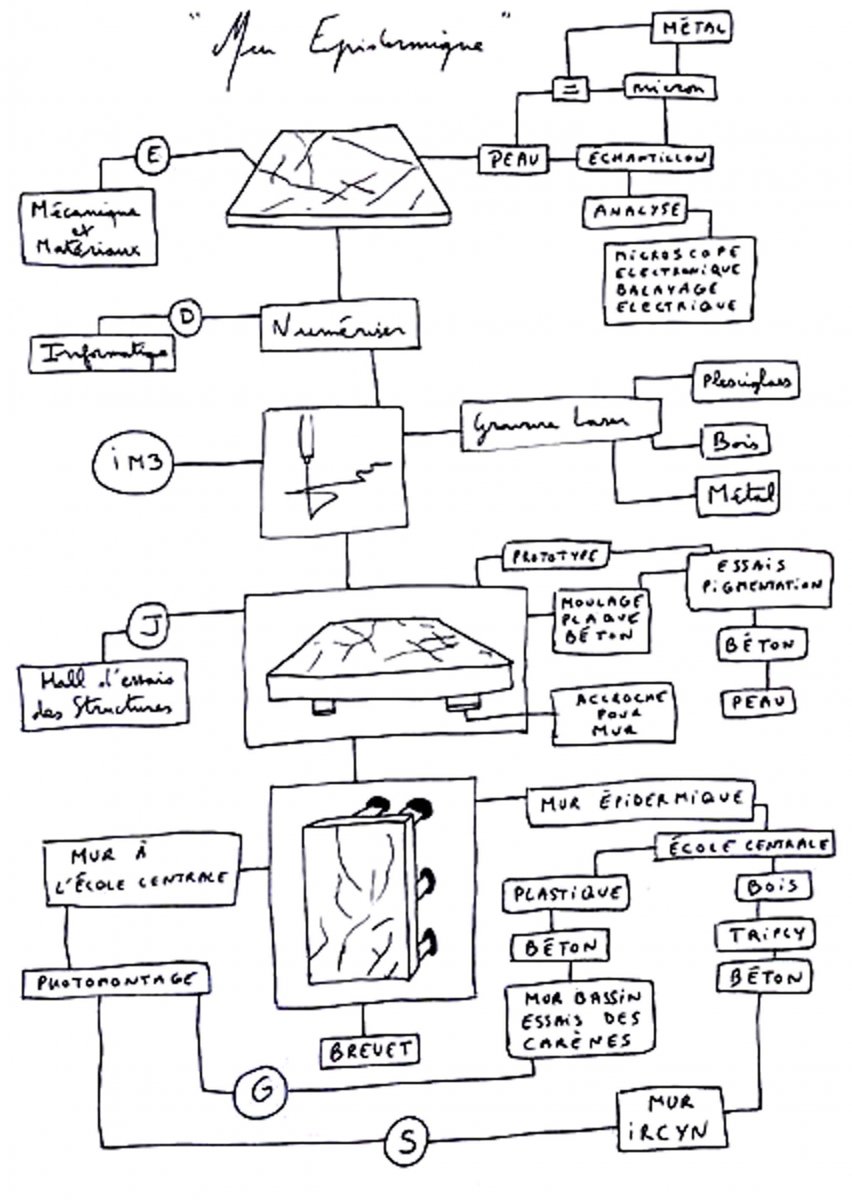 "Mur Epidermique"
MÉTAL
=
micron
E
PEAU
ÉCHANTILLON
Mécanique
et
Matériaux
ANALYSE
MICROSCOPE
ELECTRONIQUE
BALAYAGE
ELECTRIQUE
D
Numériser
Informatique
Plexiglaes
Gravure Laser
Bois
iM3
Métal
PROTOTYPE
ESSAIS
PIGMENTATION
MOULAGE
PLAQUE
BÉTON
J
BÉTON
Hall d'essais
des Structures
PEAU
ACCROCHE
POUR
MUR
MUR ÉPIDERMIQUE
MUR À
L'ÉCOLE CENTRALE
ÉCOLE CENTRALE
PLASTIQUE
BOIS
BÉTON
TRIPLY
PHOTOMONTAGE
BÉTON
MUR BASSIN
ESSAIS DES
CARÈNES
BREVET
G
MUR
iRCYN
S